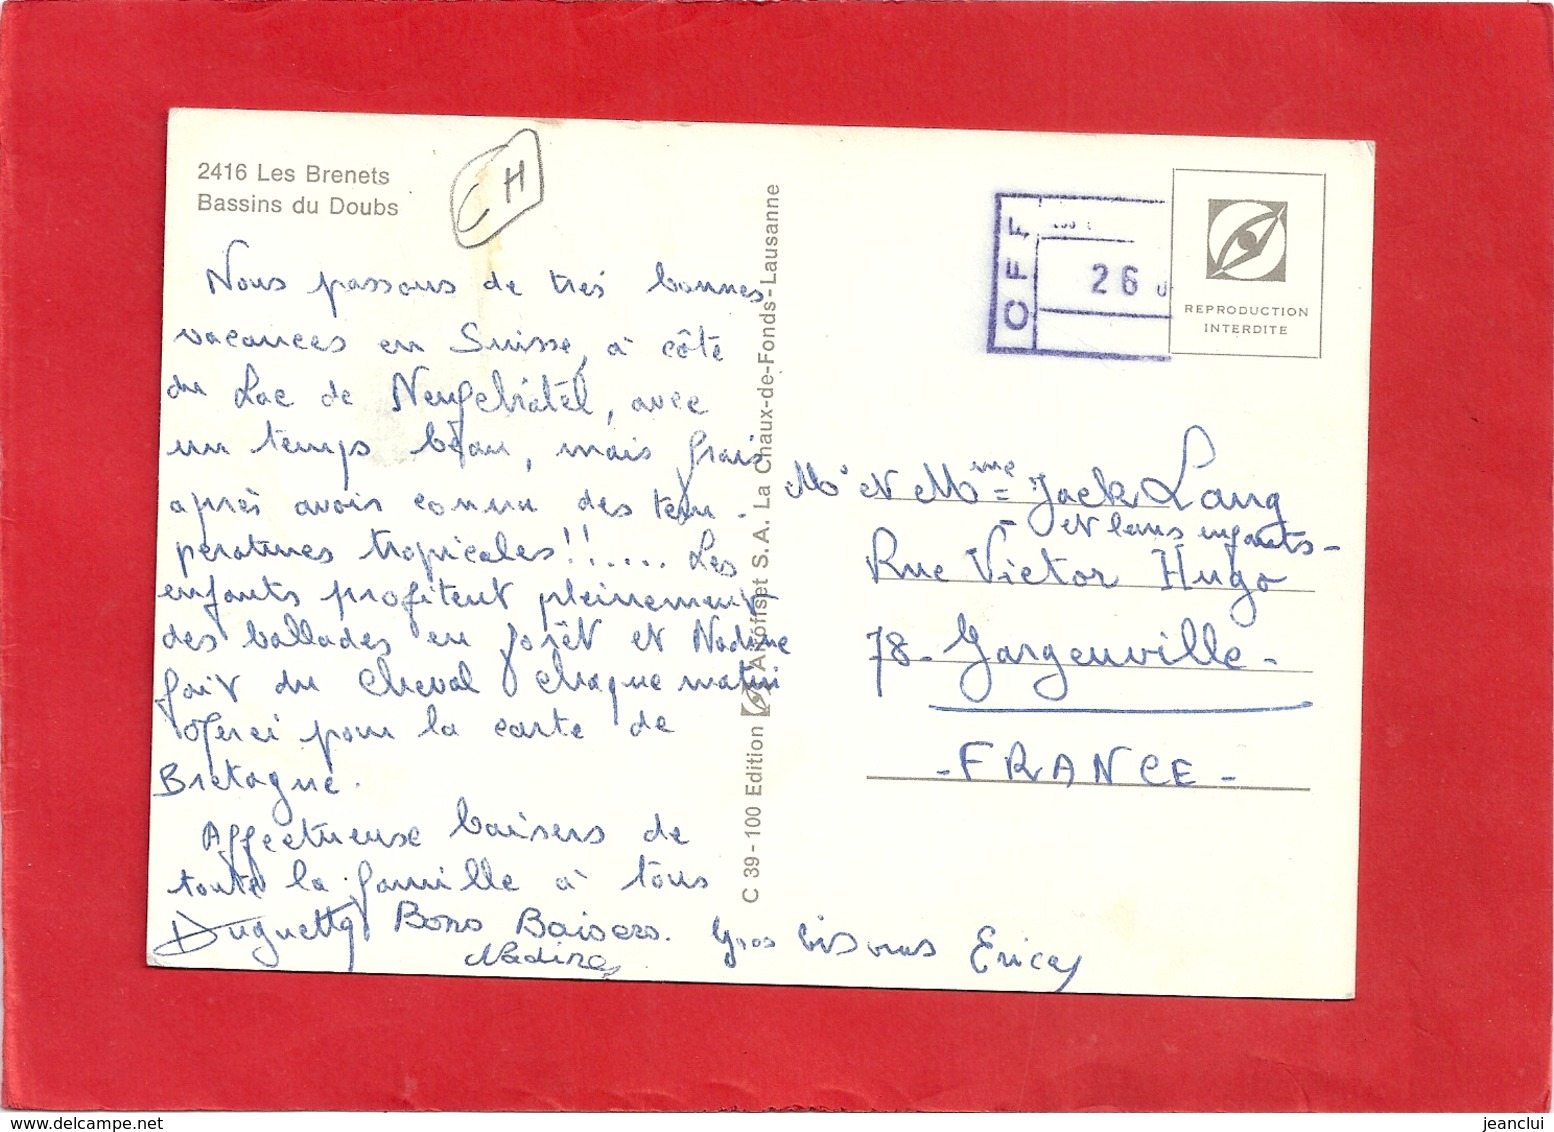 2416 Les Brenets
Bassins du Doubs
CH
Nous passons de très bonnes
vacances en Suisse, à côté
du Lac de Neufchâtel, avec
un temps beau, mais frais
après avoir connu des tem-
pératures tropicales!!..... Les
enfants profitent pleinement
des ballades en forêt et Nadine
fait du cheval chaque matin
Merci pour la carte de
Bretagne.
Affectueux baisers de
toute la famille à tous
Huguette Bons Baisers. Gros bisous Erica
Nadine
C 39-100 Edition Artoffset S.A. La Chaux-de-Fonds-Lausanne
OFF
26
REPRODUCTION
INTERDITE
Mr et Mme Jack Lang
et leurs enfants-
Rue Victor Hugo
78- Gargenville-
- FRANCE -
delcampe.net
jeanclui